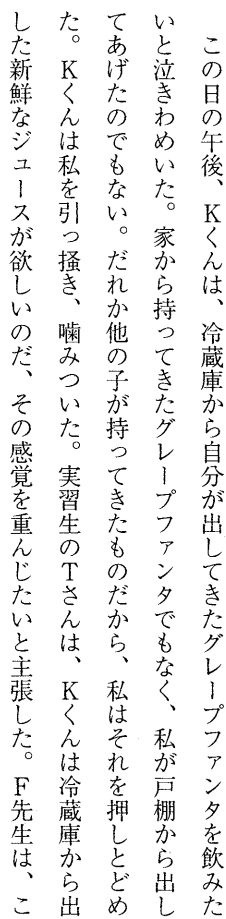 この日の午後、Kくんは、冷蔵庫から自分が出してきたグレープファンタを飲みた
いと泣きわめいた。家から持ってきたグレープファンタでもなく、私が戸棚から出し
てあげたのでもない。だれか他の子が持ってきたものだから、私はそれを押しとどめ
た。Kくんは私を引っ掻き、噛みついた。実習生のTさんは、Kくんは冷蔵庫から出
した新鮮なジュースが欲しいのだ、その感覚を重んじたいと主張した。F先生は、こ